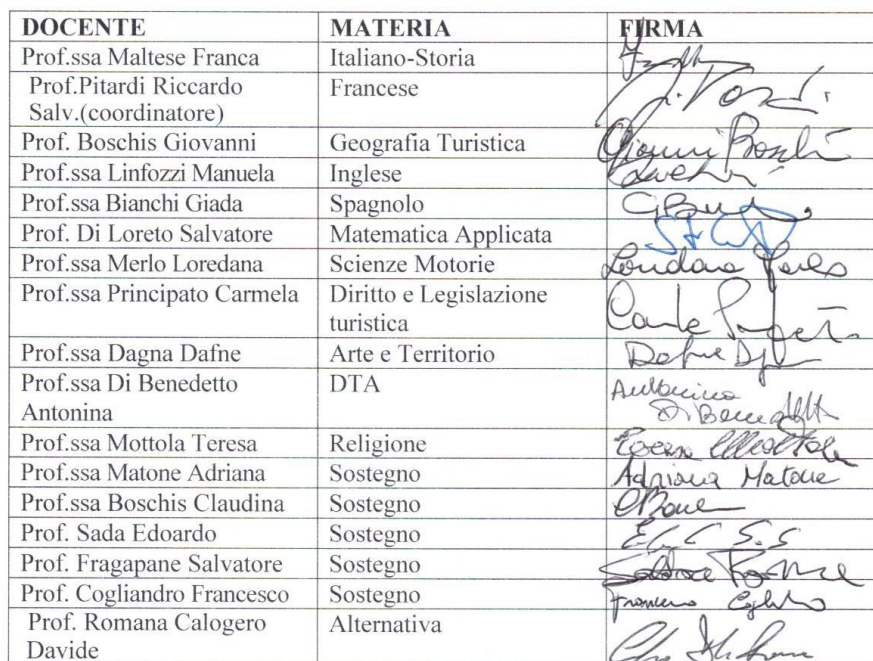 DOCENTE MATERIA FIRMA
Prof.ssa Maltese Franca Italiano-Storia
Prof.Pitardi Riccardo Francese
Salv.(coordinatore)
Prof. Boschis Giovanni Geografia Turistica Gianni Boschis
Prof.ssa Linfozzi Manuela Inglese
Prof.ssa Bianchi Giada Spagnolo
Prof. Di Loreto Salvatore Matematica Applicata
Prof.ssa Merlo Loredana Scienze Motorie Loredana Merlo
Prof.ssa Principato Carmela Diritto e Legislazione
turistica
Prof.ssa Dagna Dafne Arte e Territorio Dafne
Prof.ssa Di Benedetto DTA Antonina
Antonina Di Benedetto
Prof.ssa Mottola Teresa Religione Teresa Mottola
Prof.ssa Matone Adriana Sostegno Adriana Matone
Prof.ssa Boschis Claudina Sostegno
Prof. Sada Edoardo Sostegno
Prof. Fragapane Salvatore Sostegno
Prof. Cogliandro Francesco Sostegno Francesco
Prof. Romana Calogero Alternativa
Davide